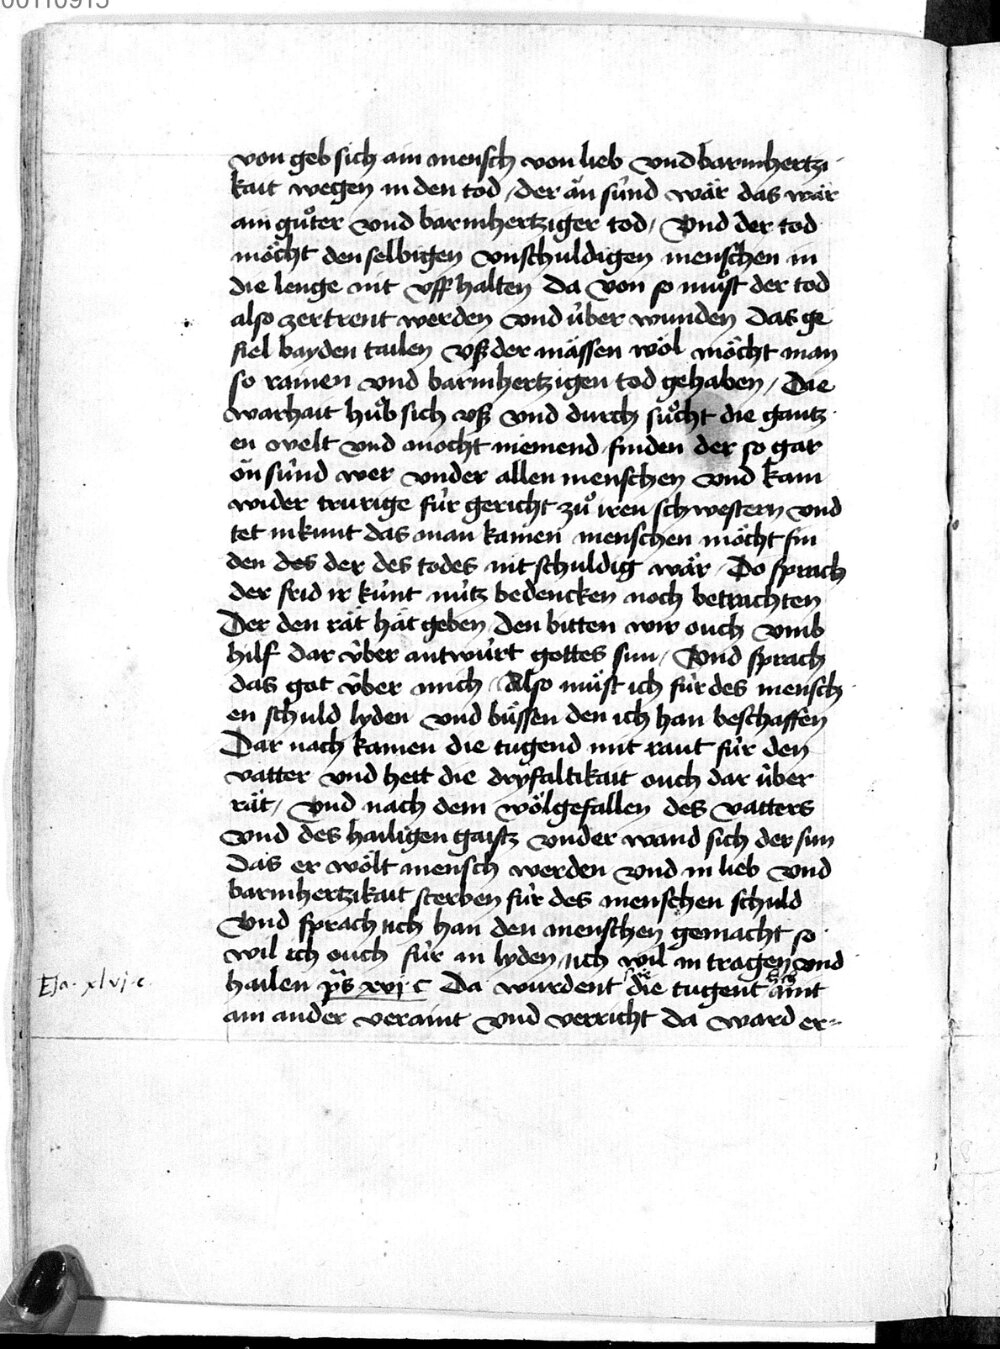 00110915
von geb sich ain mensch von lieb vnd barmhertzi
kait wegen in den tod / der ăn sünd wär das wär
ain guͦter vnd barmhertziger tod / Vnd der tod
möcht den selbigen vnschuldigen menschen in
die lenge nit vff halten Da von so muͤst der tod
also zertrent werden vnd über wunden Das ge
fiel bayden tailen vß der mässen wöl möcht man
so rainen vnd barmhertzigen tod gehaben / Die
warhait huͦb sich vß vnd durch suͦcht die gantz
en welt vnd mocht niemend finden der so gar
ön sünd wer vnder allen menschen vnd kam
wider trurige für gericht zuͦ iren schwestern vnd
tet in kunt das man kainen menschen möcht fin
den des der des todes nit schuldig wär / Do sprach
der frid ir kúnt nútz bedencken noch betrachten
Der den rät hät geben Den bitten wir ouch vmb
hilf dar über antwúrt gottes sun / Vnd sprach
das gat über mich / Also muͤst ich für des mensch
en schuld lyden vnd buͤssen den ich han beschaffen
Dar nach kamen die tugend mit raut für den
vatter vnd hett die dryfaltikait ouch dar über
rät / vnd nach dem wölgefallen des vatters
vnd des hailigen gaistz vnder wand sich der sun
das er wölt mensch werden vnd in lieb vnd
barmhertzikait sterben für des menschen schuld
Vnd sprach ich han den menschen gemacht so
wil ich ouch für in lyden / ich wil in tragen vnd
Esa. xlvj. c
hailen ps xvj c Da wurdent die tugent mit
ain ander veraint vnd verricht da ward er=